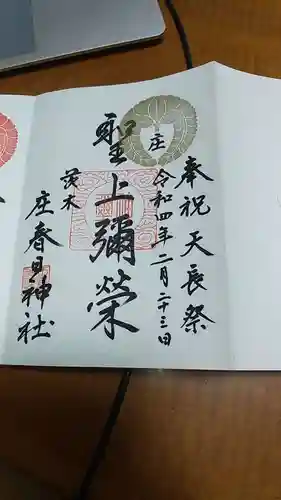 奉祝 天長祭
令和四年 二月二十三日
庄
聖上彌榮
茨木
庄春日神社